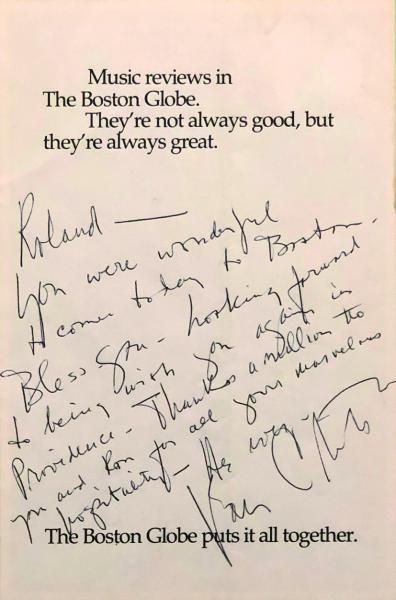 Music reviews in
The Boston Globe.
They're not always good, but
they're always great.
Roland —
You were wonderful
to come today to Boston.
Bless you - Looking forward
to being with you again in
Providence - Thanks a million to
you and Ron for all your marvelous
hospitality -
Van
The Boston Globe puts it all together.